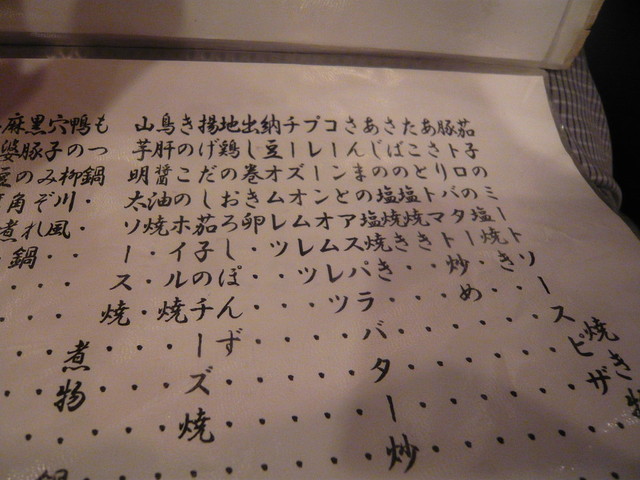 焼き物
茄子のミートソースピザ
豚トロの塩焼き
さんまの塩焼
コーンとアスパラバター炒
プレーンオムレツ
チーズオムレツ
納豆オムレツ
出し巻き卵
地鶏のおろしぽんず
揚げだし茄子のチーズ焼
きのこのホイル焼
鳥肝醤油焼
山芋明太ソース焼
煮物
もつ鍋
鴨の柳川風鍋
穴子のみぞれ
黒豚角煮
麻婆豆
鍋